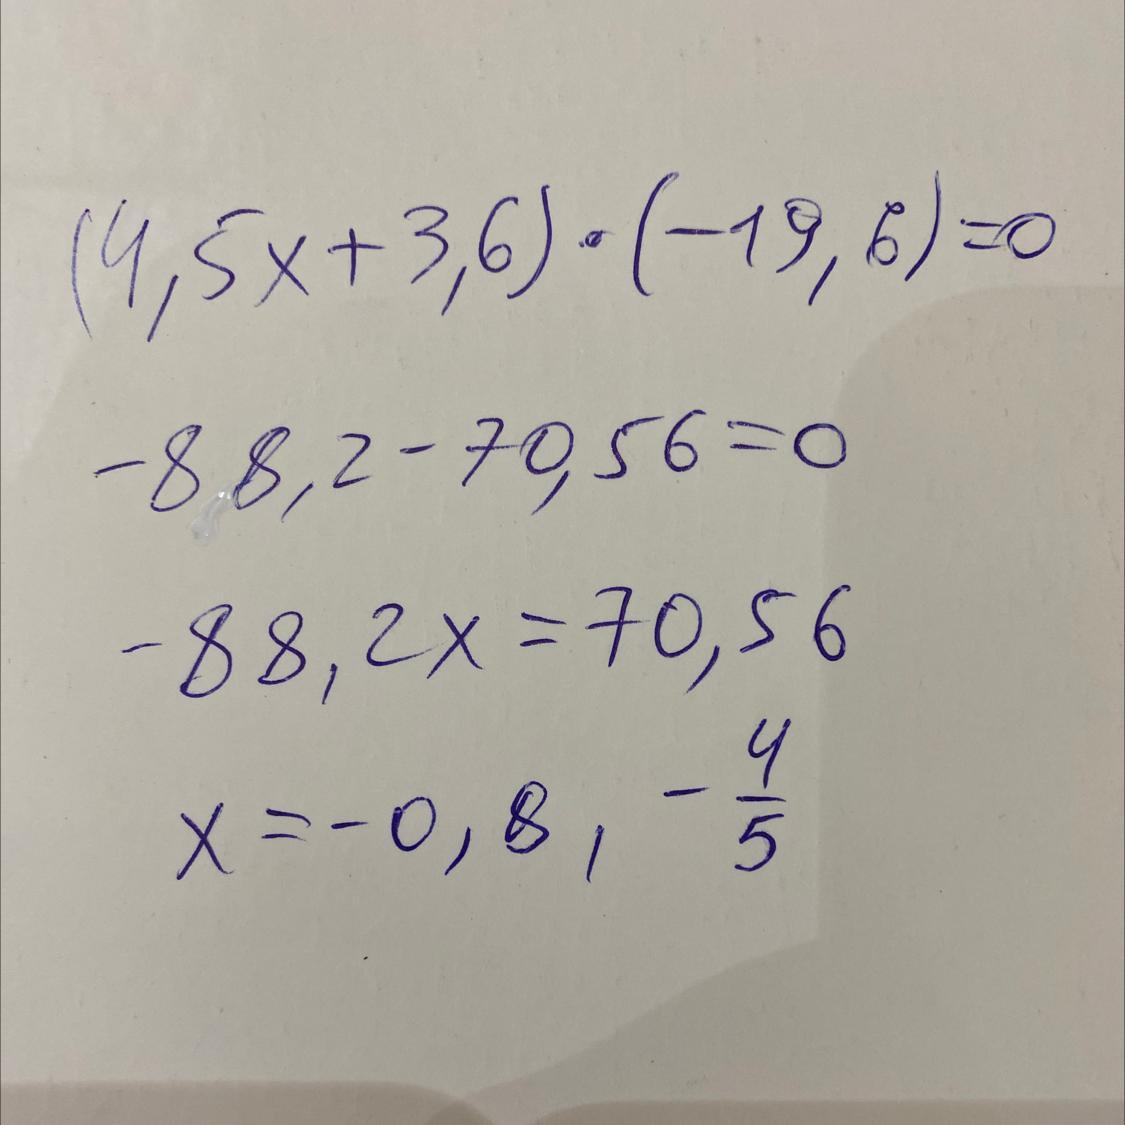 (4,5x+3,6)·(-19,6)=0
-88,2-70,56=0
-88,2x=70,56
x=-0,8, -4/5